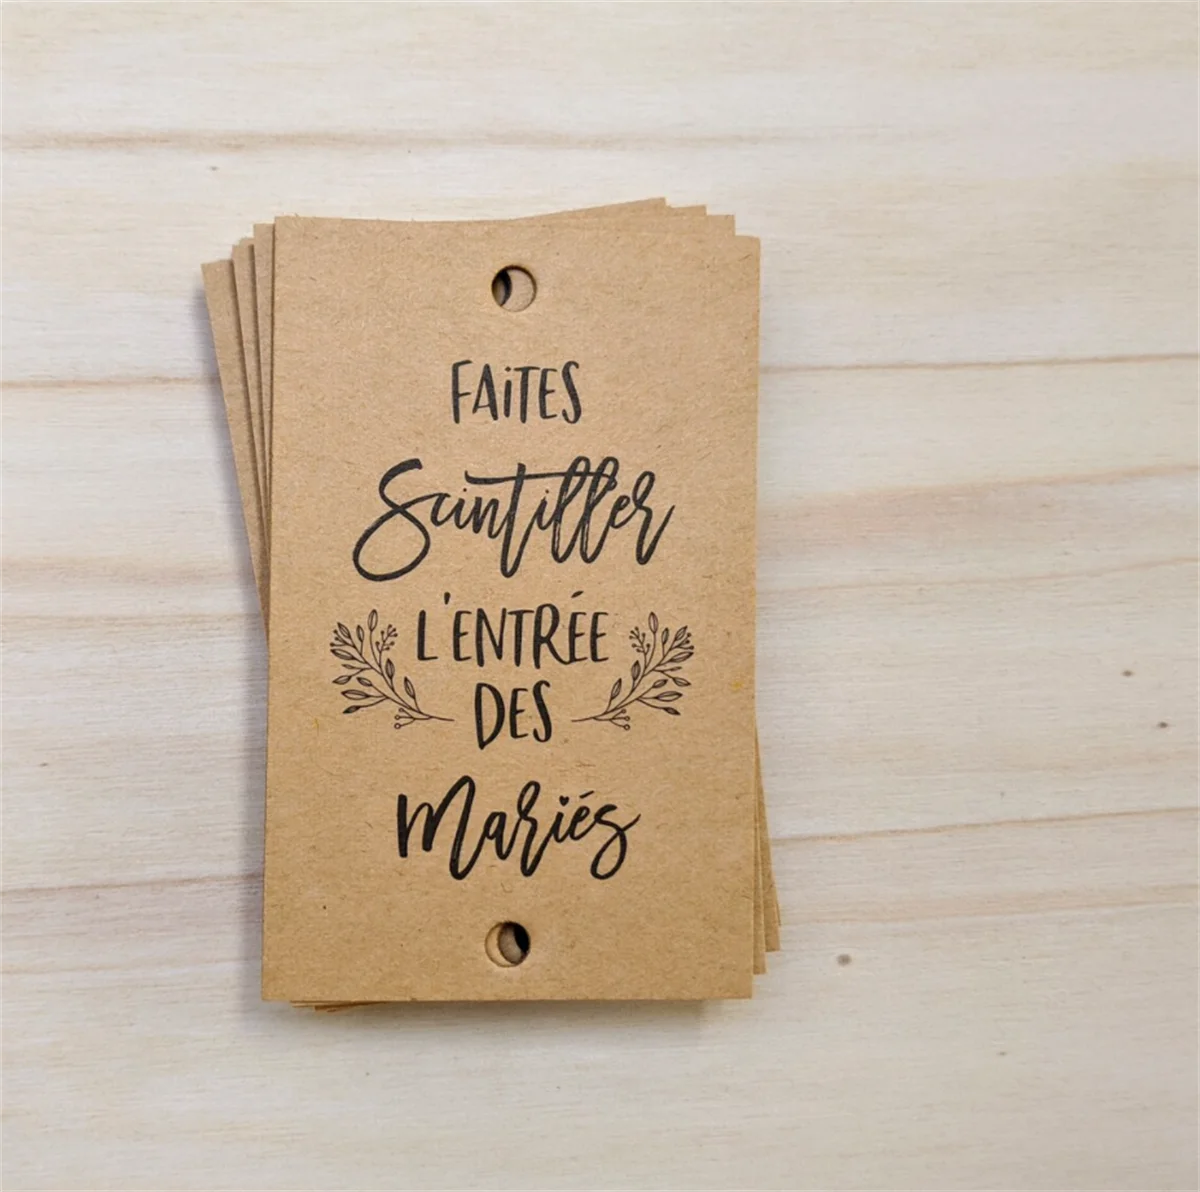 FAiTES
Scintiller
L'ENTRÉE
DES
Mariés